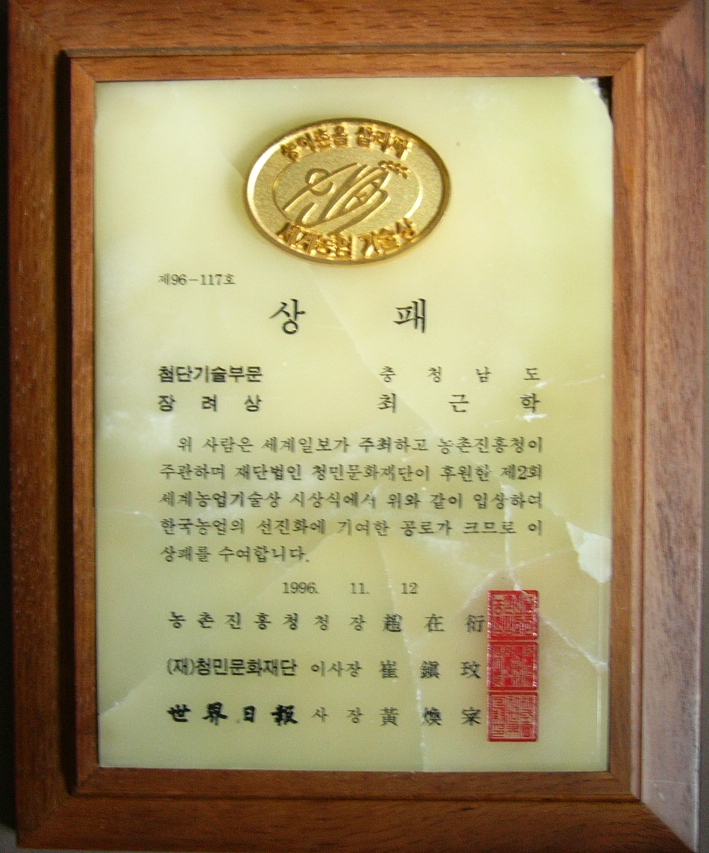 농어촌을 살리자
세계농업 기술상
제96-117호
상 패
첨단기술부문 충 청 남 도
장 려 상 최 근 학
위 사람은 세계일보가 주최하고 농촌진흥청이
주관하며 재단법인 청민문화재단이 후원한 제2회
세계농업기술상 시상식에서 위와 같이 입상하여
한국농업의 선진화에 기여한 공로가 크므로 이
상패를 수여합니다.
1996. 11. 12
농촌진흥청 청 장 趙 在 衍
(재)청민문화재단 이사장 崔 鎭 玟
世界日報 사 장 黃 煥 寀